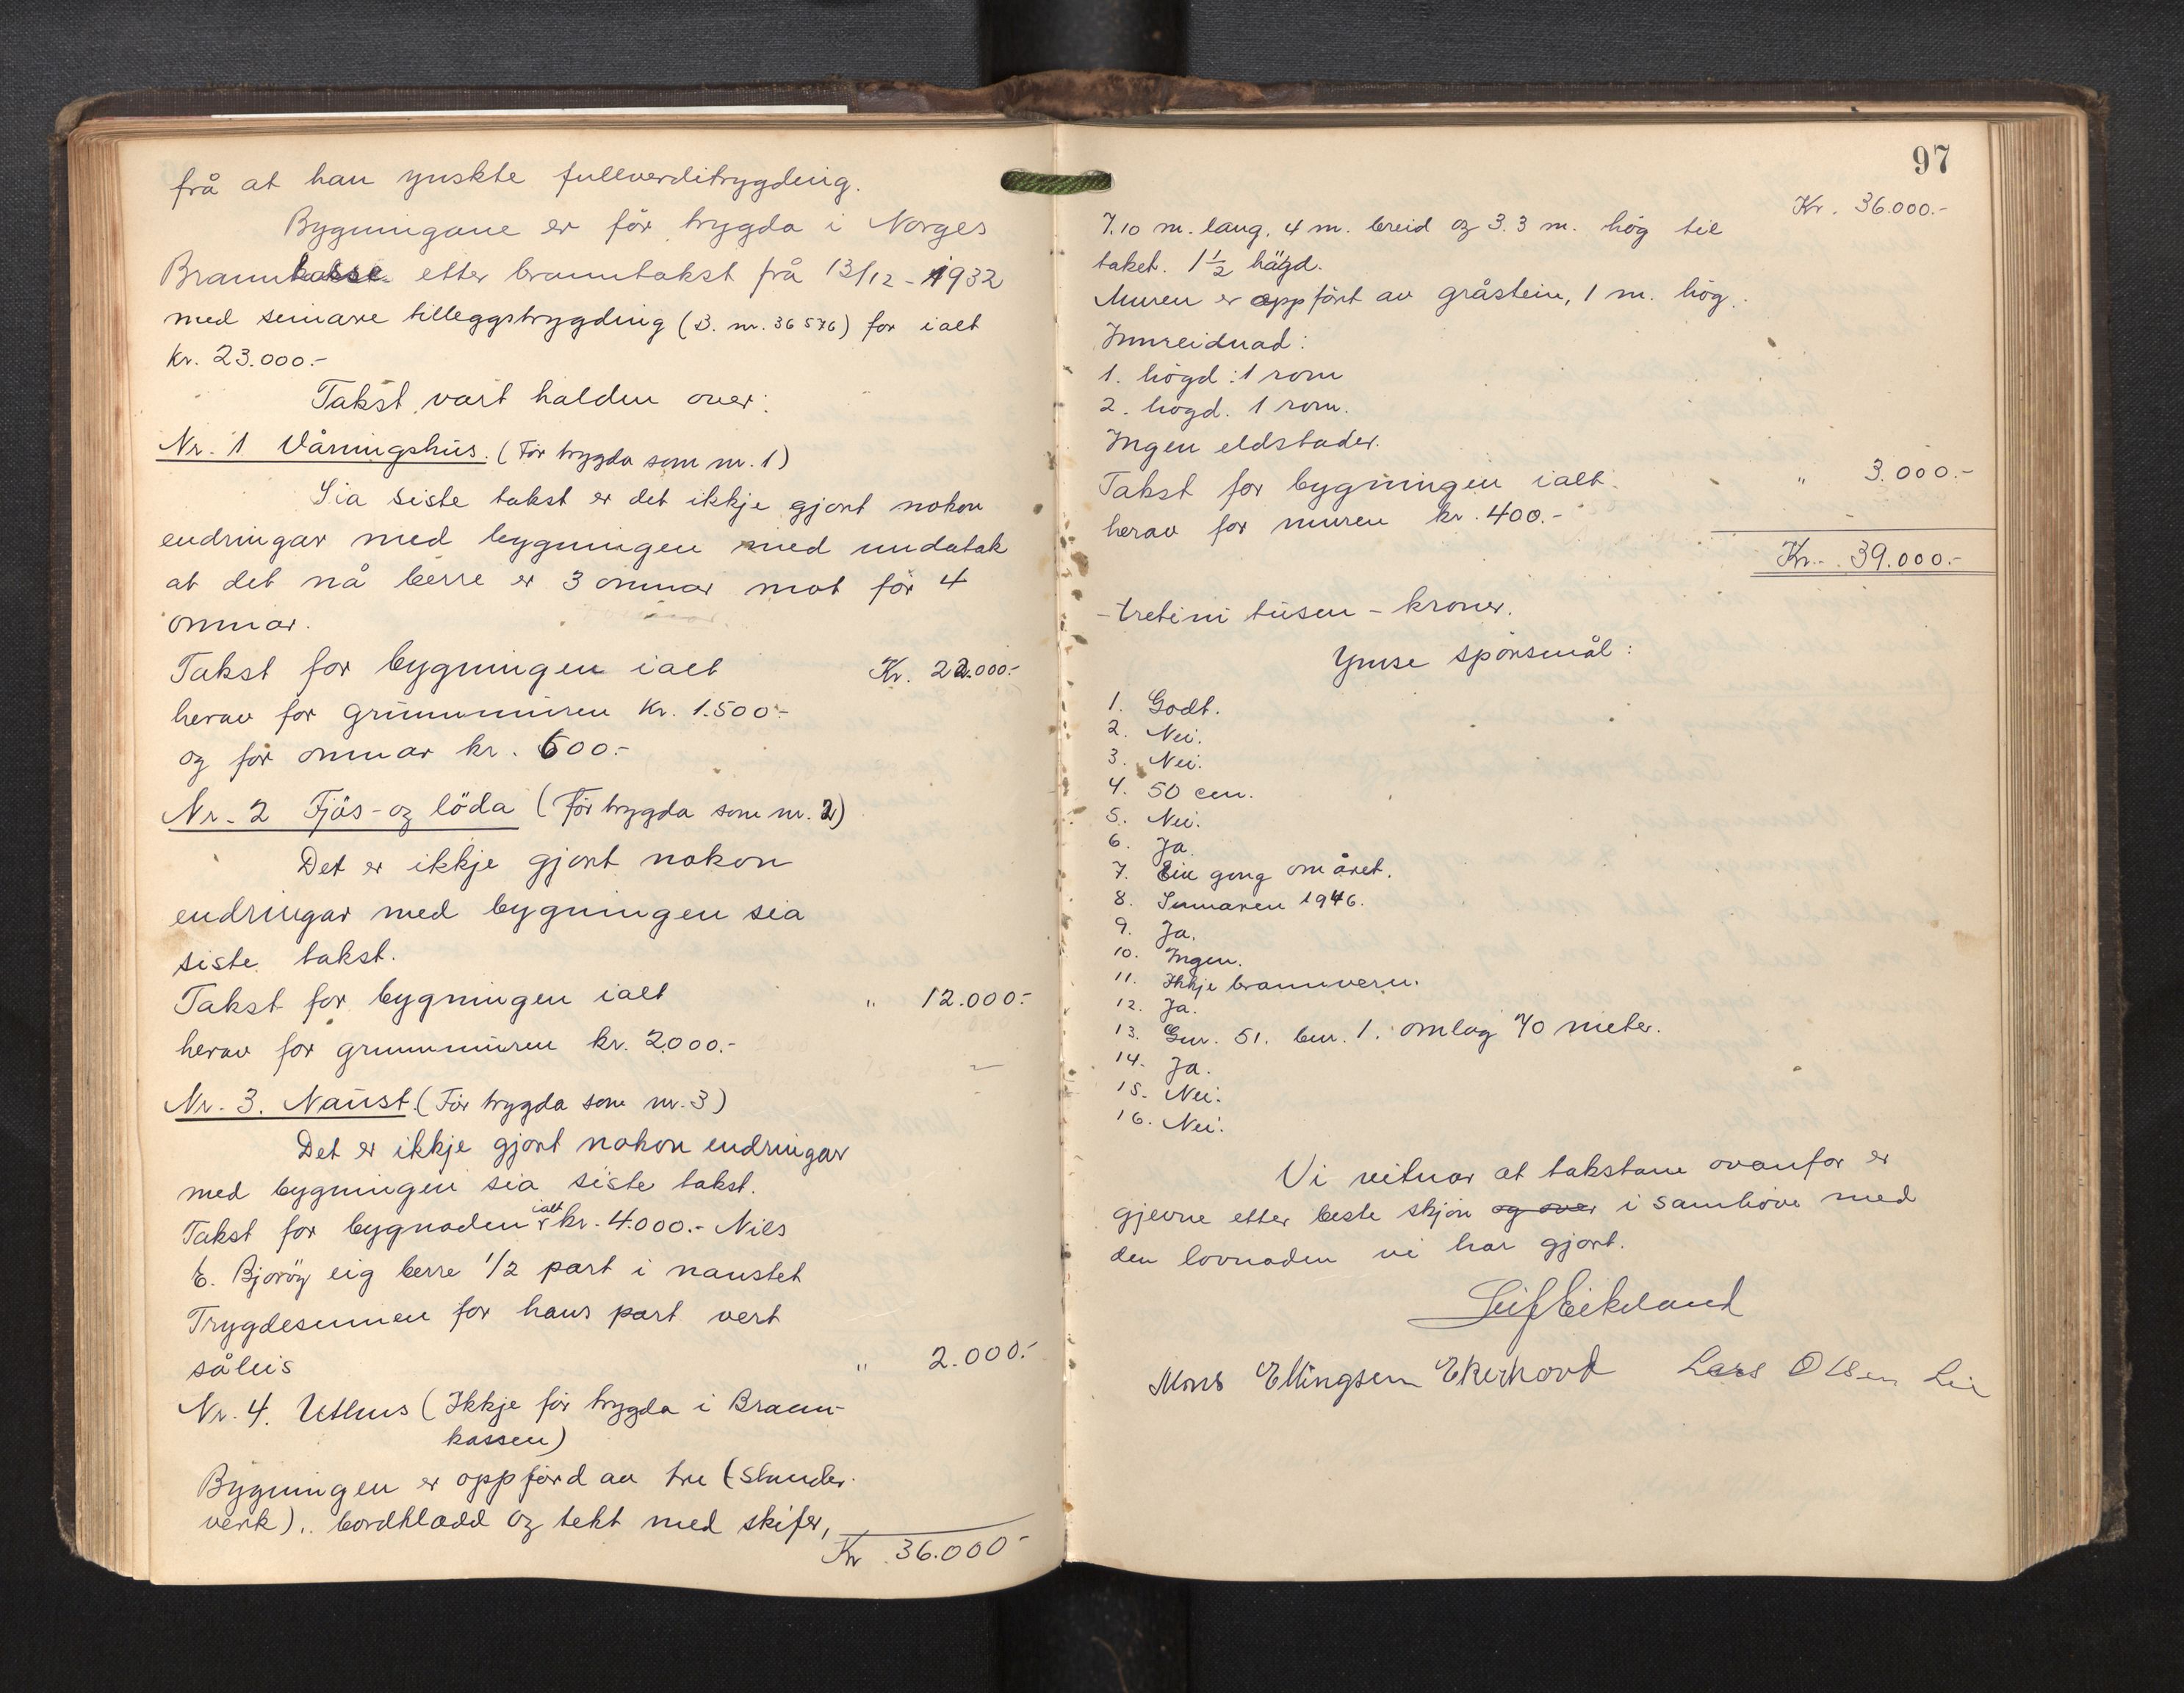 frå at han ynskte fullverditrygding.
Bygningane er för trygda i Norges
Brannkasse etter branntakst frå 13/12 - 1932
med seinare tilleggstrygding (B. nr. 36576) for ialt
kr. 23.000.-
Takst vart halden over:
Nr. 1 Våningshus. (För trygda som nr. 1)
Sia siste takst er det ikkje gjort nokon
endringar med bygningen med undatak
at det nå berre er 3 omnar mot för 4
omnar.
Takst for bygningen ialt Kr. 22.000.-
herav for grunnmuren kr. 1.500.-
og for omnar kr. 600.-
Nr. 2 Fjös- og löda (För trygda som nr. 2)
Det er ikkje gjort nokon
endringar med bygningen sia
siste takst.
Takst for bygningen ialt " 12.000.-
herav for grunnmuren kr. 2000.-
Nr. 3. Naust. (För trygda som nr. 3)
Det er ikkje gjort nokon endringar
med bygningen sia siste takst.
Takst for bygnaden ialt kr. 4.000.- Nils
E. Bjoröy eig berre 1/2 part i naustet
Trygdesummen for hans part vert
såleis " 2.000.-
Nr. 4. Uthus (Ikkje för trygda i Brann-
kassen)
Bygningen er oppförd av tre (stander-
verk).. bordkledd og tekt med skifer,
Kr. 36.000.-
97
Kr. 36.000.-
7.10 m. lang, 4 m. breid og 3.3 m. hög til
taket. 1 1/2 högd.
Muren er oppfört av gråstein, 1 m. hög.
Innreidnad:
1. högd: 1 rom
2. högd. 1 rom.
Ingen eldstader.
Takst for bygningen ialt. " 3.000.-
herav for muren kr. 400.-
Kr. 39.000.-
- tretini tusen - kroner.
Ymse spörsmål:
1. Godt.
2. Nei.
3. Nei.
4. 50 cm.
5. Nei.
6. Ja.
7. Ein gong om året.
8. Sumaren 1946.
9. Ja.
10. Ingen.
11. Ikkje brannvern.
12. Ja.
13. Gnr. 51. bnr. 1. omlag 70 meter.
14. Ja.
15. Nei.
16. Nei.
Vi vitnar at takstane ovanfor er
gjevne etter beste skjön og over i samhöve med
den lovnaden vi har gjort.
Leif Eikeland
Mons Ellingsen Ekerhovd Lars Olsen Lie